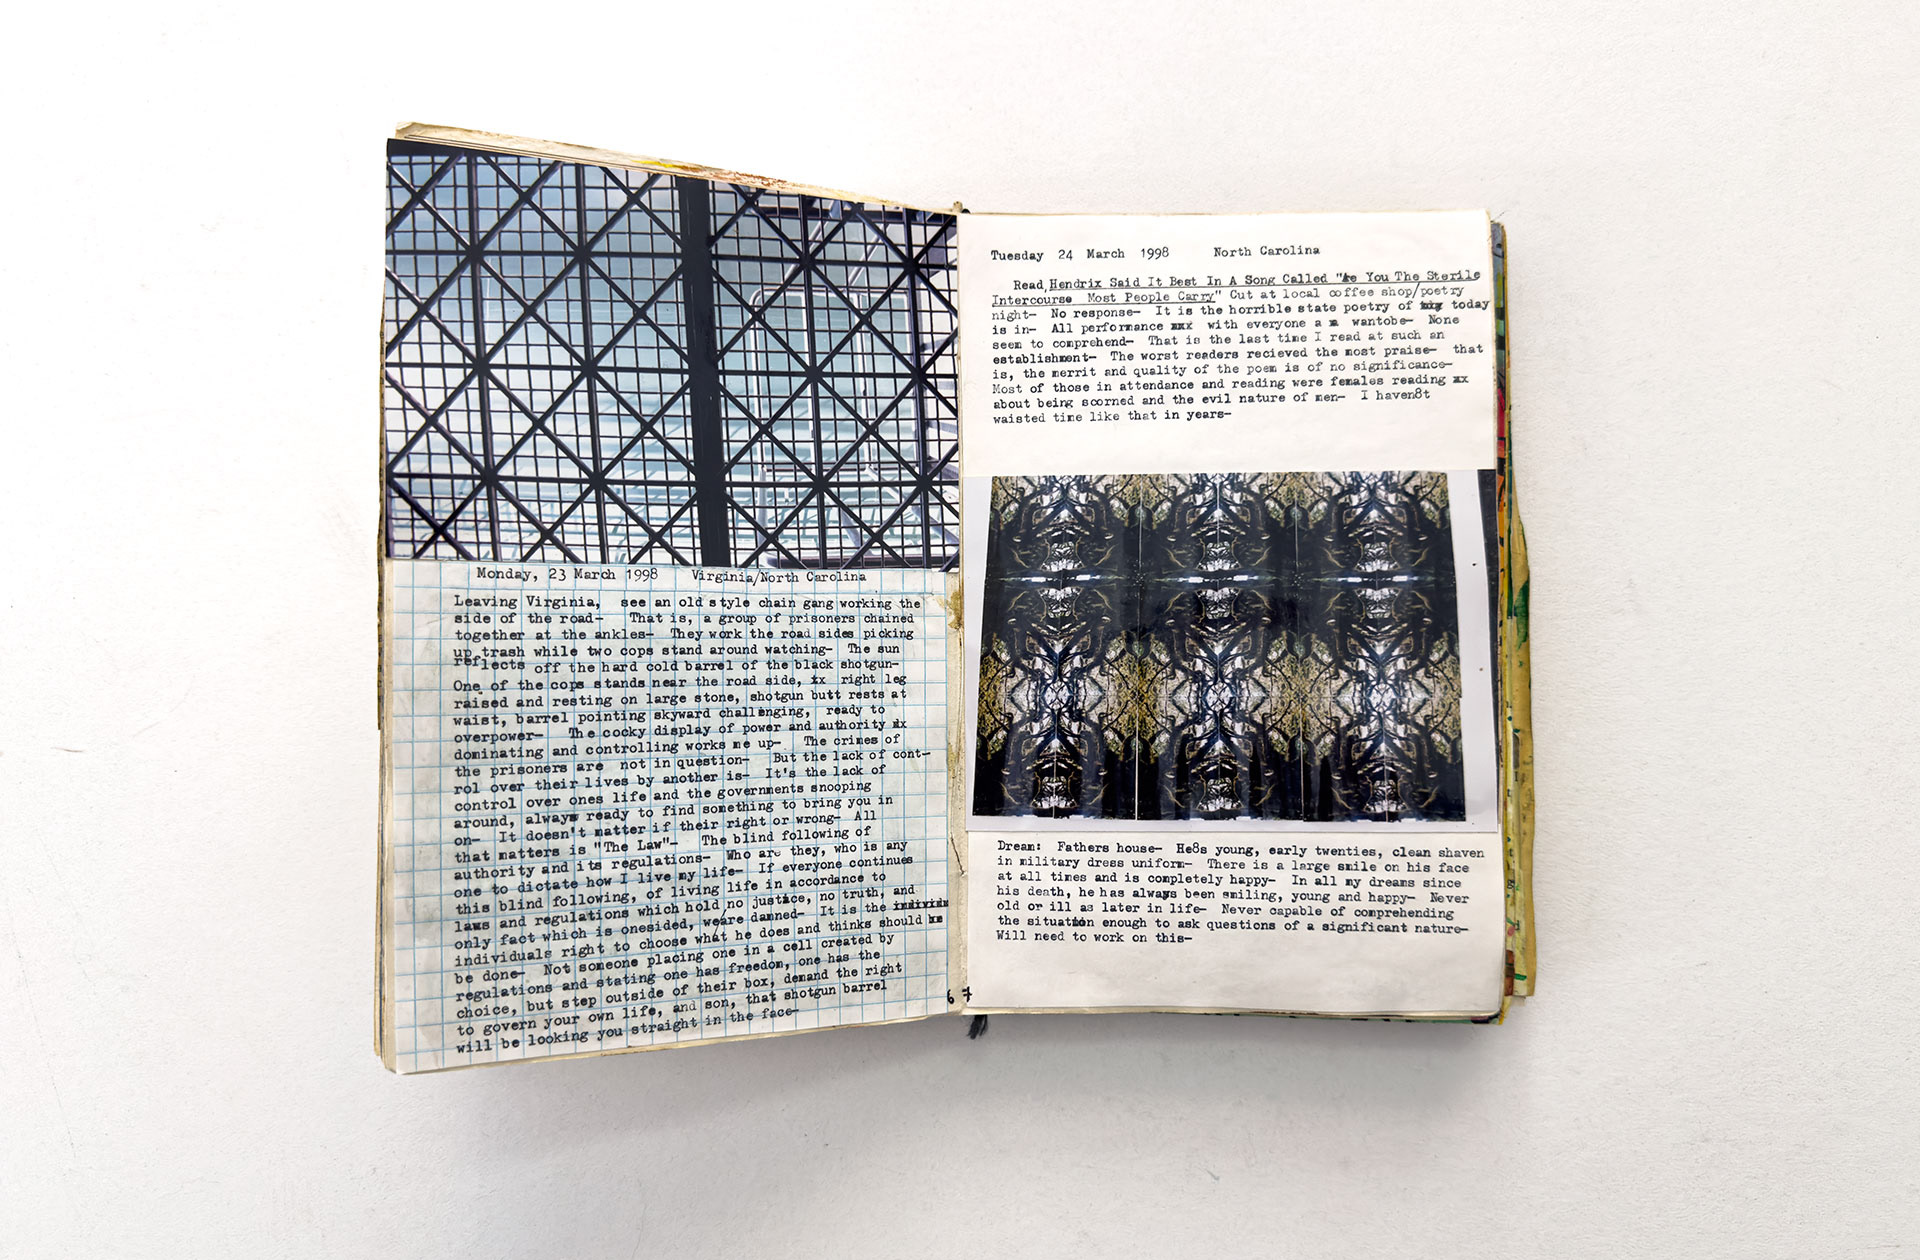 Monday, 23 March 1998 Virginia/North Carolina
Leaving Virginia, see an old style chain gang working the
side of the road- That is, a group of prisoners chained
together at the ankles- They work the road sides picking
up trash while two cops stand around watching- The sun
reflects off the hard cold barrel of the black shotgun-
One of the cops stands near the road side, xx right leg
raised and resting on large stone, shotgun butt rests at
waist, barrel pointing skyward challenging, ready to
overpower- The cocky display of power and authority
dominating and controlling works me up- The crimes of
the prisoners are not in question- But the lack of cont-
rol over their lives by another is- It's the lack of
control over ones life and the governments snooping
around, always ready to find something to bring you in
on- It doesn't matter if their right or wrong- All
that matters is "The Law"- The blind following of
authority and its regulations- Who are they, who is any
one to dictate how I live my life- If everyone continues
this blind following, of living life in accordance to
laws and regulations which hold no justice, no truth, and
only fact which is onesided, we/are damned- It is the
individuals right to choose what he does and thinks should
be done- Not someone placing one in a cell created by
regulations and stating one has freedom, one has the
choice, but step outside of their box, demand the right
to govern your own life, and son, that shotgun barrel
will be looking you straight in the face-
6 7
Tuesday 24 March 1998 North Carolina
Read, Hendrix Said It Best In A Song Called "Are You The Sterile
Intercourse Most People Carry" Cut at local coffee shop/poetry
night- No response- It is the horrible state poetry of today
is in- All performance xxx with everyone a wantobe- None
seem to comprehend- That is the last time I read at such an
establishment- The worst readers recieved the most praise- that
is, the merrit and quality of the poem is of no significance-
Most of those in attendance and reading were females reading xx
about being scorned and the evil nature of men- I haven8t
waisted time like that in years-
Dream: Fathers house- He8s young, early twenties, clean shaven
in military dress uniform- There is a large smile on his face
at all times and is completely happy- In all my dreams since
his death, he has always been smiling, young and happy- Never
old or ill as later in life- Never capable of comprehending
the situation enough to ask questions of a significant nature-
Will need to work on this-